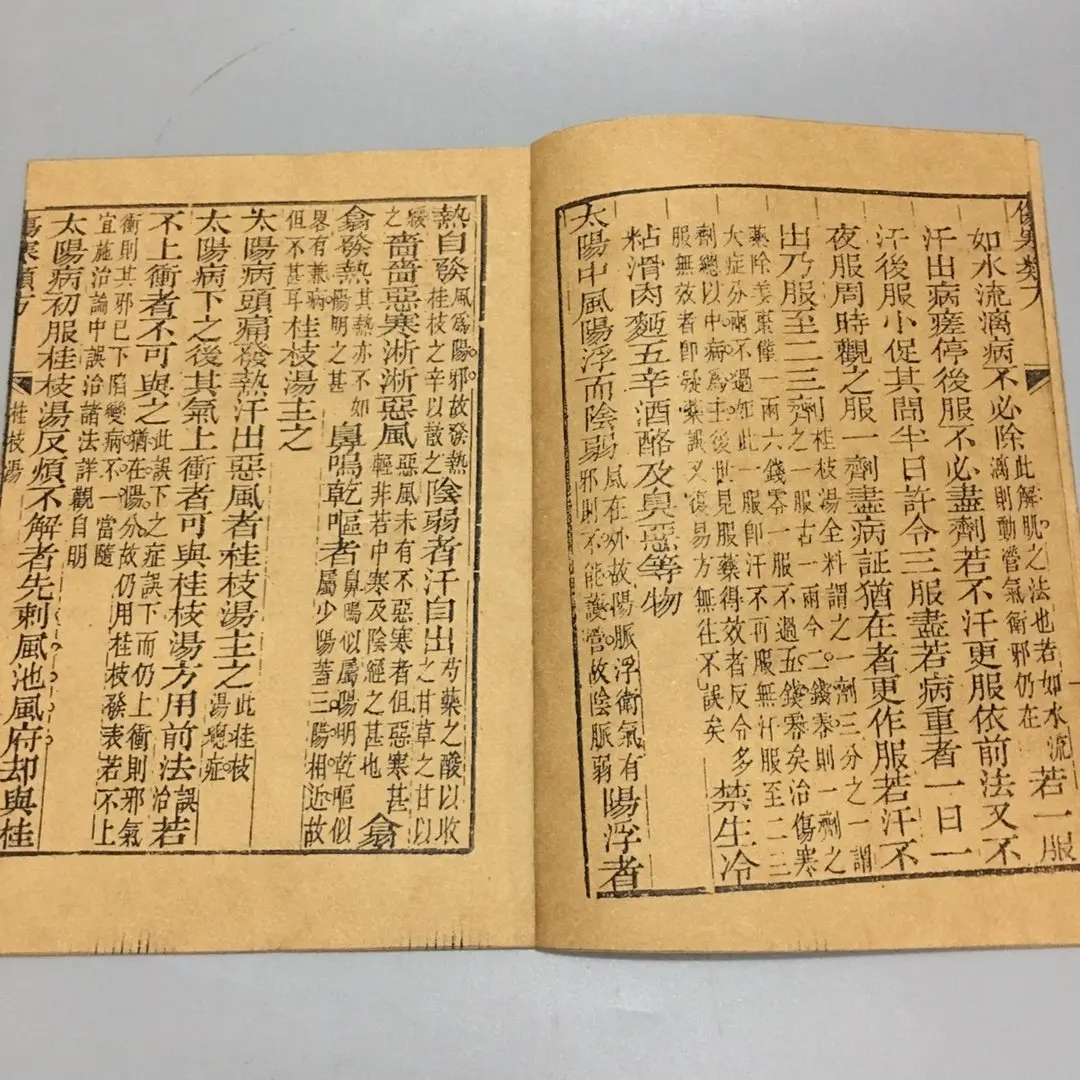 傷寒類方
如水流漓病不必除此解肌之法也若如水流漓則動營氣衛邪仍在若一服
汗出病瘥停後服不必盡劑若不汗更服依前法又不
汗後服小促其間半日許令三服盡若病重者一日一
夜服周時觀之服一劑盡病証猶在者更作服若汗不
出乃服至二三劑桂枝湯全料謂之一劑三分之一謂之一服古一兩今二錢零則一劑之
藥除姜棗僅一兩六錢零一服不過五錢零矣治傷寒大症分兩不過如此一服即汗不再服無汗服至二三
劑總以中病為主後世見服藥得效者反令多服無效者即疑藥誤又復易方無往不誤矣禁生冷
粘滑肉麪五辛酒酪及臭惡等物
太陽中風陽浮而陰弱風在外故陽脈浮衛氣有邪則不能護營故陰脈弱陽浮者
熱自發風為陽邪故發熱桂枝之辛以散之陰弱者汗自出芍藥之酸以收之甘草之甘以
緩之嗇嗇惡寒淅淅惡風惡風未有不惡寒者但惡寒甚輕非若中寒及陰經之甚也翕
翕發熱其熱亦不如陽明之甚鼻鳴乾嘔者鼻鳴似屬陽明乾嘔似屬少陽蓋三陽相近故
畧有兼病但不甚耳桂枝湯主之
太陽病頭痛發熱汗出惡風者桂枝湯主之此桂枝湯總症
太陽病下之後其氣上衝者可與桂枝湯方用前法誤治若
不上衝者不可與之此誤下之症誤下而仍上衝則邪氣猶在陽分故仍用桂枝發表若不上
衝則其邪已下陷變病不一當隨宜施治論中誤治諸法詳觀自明
太陽病初服桂枝湯反煩不解者先刺風池風府却與桂
傷寒類方 桂枝湯